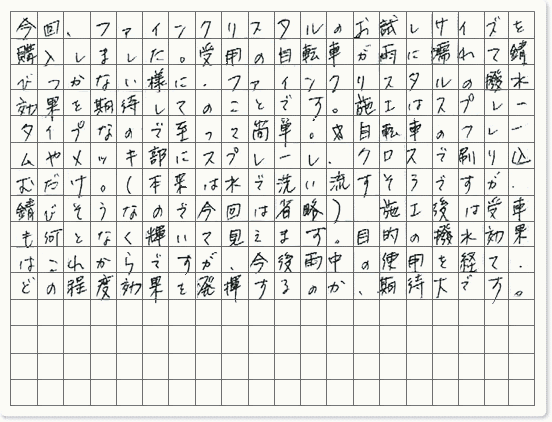 今回、ファインクリスタルのお試しサイズを
購入しました。愛用の自転車が雨に濡れて錆
びつかない様に、ファインクリスタルの撥水
効果を期待してのことです。施工はスプレー
タイプなので至って簡単。自転車のフレー
ムやメッキ部にスプレーし、クロスで刷り込
むだけ。(本来は水で洗い流すそうですが、
錆びそうなので今回は省略) 施工後は愛車
も何となく輝いて見えます。目的の撥水効果
はこれからですが、今後雨中の使用を経て、
どの程度効果を発揮するのか、期待大です。